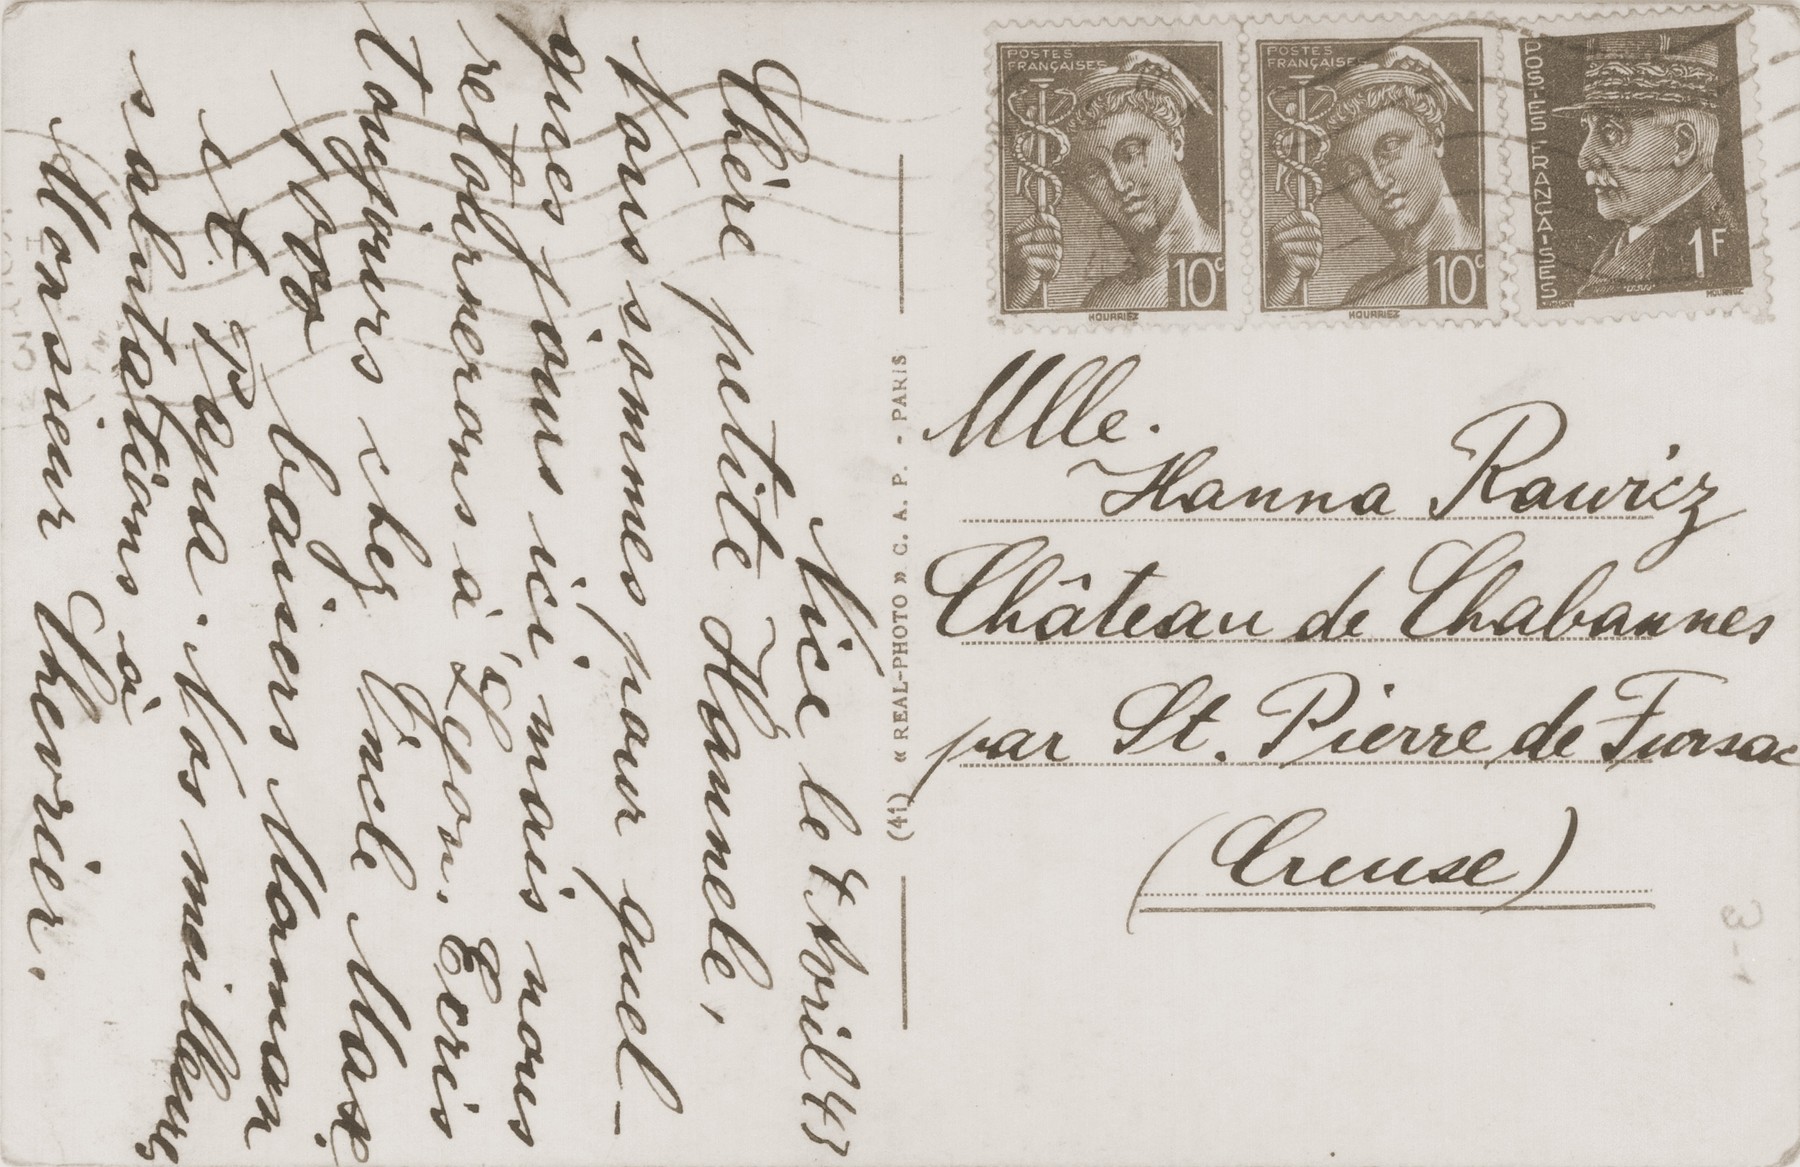 Nice le 4 Avril 43
Chère petite Hannele,
Nous sommes pour quel-
ques jours ici mais nous
retournerons à Lyon. Ecris
toujours chez Oncle Max
100 baisers Maman
et Papa. Nos meilleures
salutations à
Monsieur Chevrier.
(41) « REAL-PHOTO » C. A. P. - PARIS
POSTES
FRANÇAISES
10c
HOURRIEZ
POSTES
FRANÇAISES
10c
HOURRIEZ
POSTES FRANÇAISES
1F
Mlle.
Hanna Rawicz
Château de Chabannes
par St. Pierre de Fursac
(Creuse)